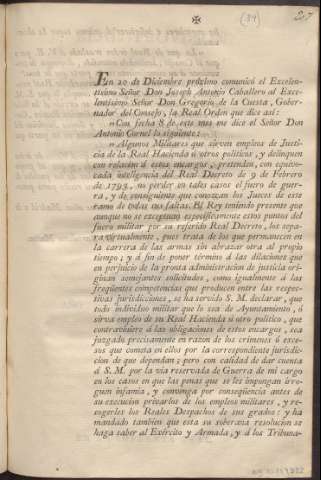 ✠
(84)
En 20 de Diciembre próximo comunicó el Excelen-
tísimo Señor Don Joseph Antonio Caballero al Exce-
lentísimo Señor Don Gregorio de la Cuesta, Gober-
nador del Consejo, la Real Orden que dice así:
"Con fecha 8 de este mes me dice el Señor Don
Antonio Cornel lo siguiente:
"Algunos Militares que sirven empleos de Justi-
cia de la Real Hacienda ú otros políticos, y delinquen
con relacion á estos encargos, pretenden, con equivo-
cada inteligencia del Real Decreto de 9 de Febrero
de 1793, no perder en tales casos el fuero de guer-
ra, y de consiguiente que conozcan los Jueces de este
ramo de todas sus faltas. El Rey teniendo presente que
aunque no se exceptuan especificamente estos puntos del
fuero militar por su referido Real Decreto, los sepa-
ra virtualmente, pues trata de los que permanecen en
la carrera de las armas sin abrazar otra al propio
tiempo; y á fin de poner término á las dilaciones que
en perjuicio de la pronta administracion de justicia ori-
ginan semejantes solicitudes, como igualmente á las
freqüentes competencias que producen entre las respec-
tivas jurisdicciones, se ha servido S. M. declarar, que
todo individuo militar que lo sea de Ayuntamiento, ó
sirva empleo de su Real Hacienda ú otro político, que
contraviniere á las obligaciones de estos encargos, sea
juzgado precisamente en razon de los crímenes ó exce-
sos que cometa en ellos por la correspondiente jurisdic-
cion de que dependan; pero con calidad de dar cuenta
á S. M. por la via reservada de Guerra de mi cargo
en los casos en que las penas que se les impongan irro-
guen infamia, y convenga por conseqüencia antes de
su execucion privarlos de los empleos militares, y re-
cogerles los Reales Despachos de sus grados: y ha
mandado tambien que esta su soberana resolucion se
haga saber al Exército y Armada, y á los Tribuna-